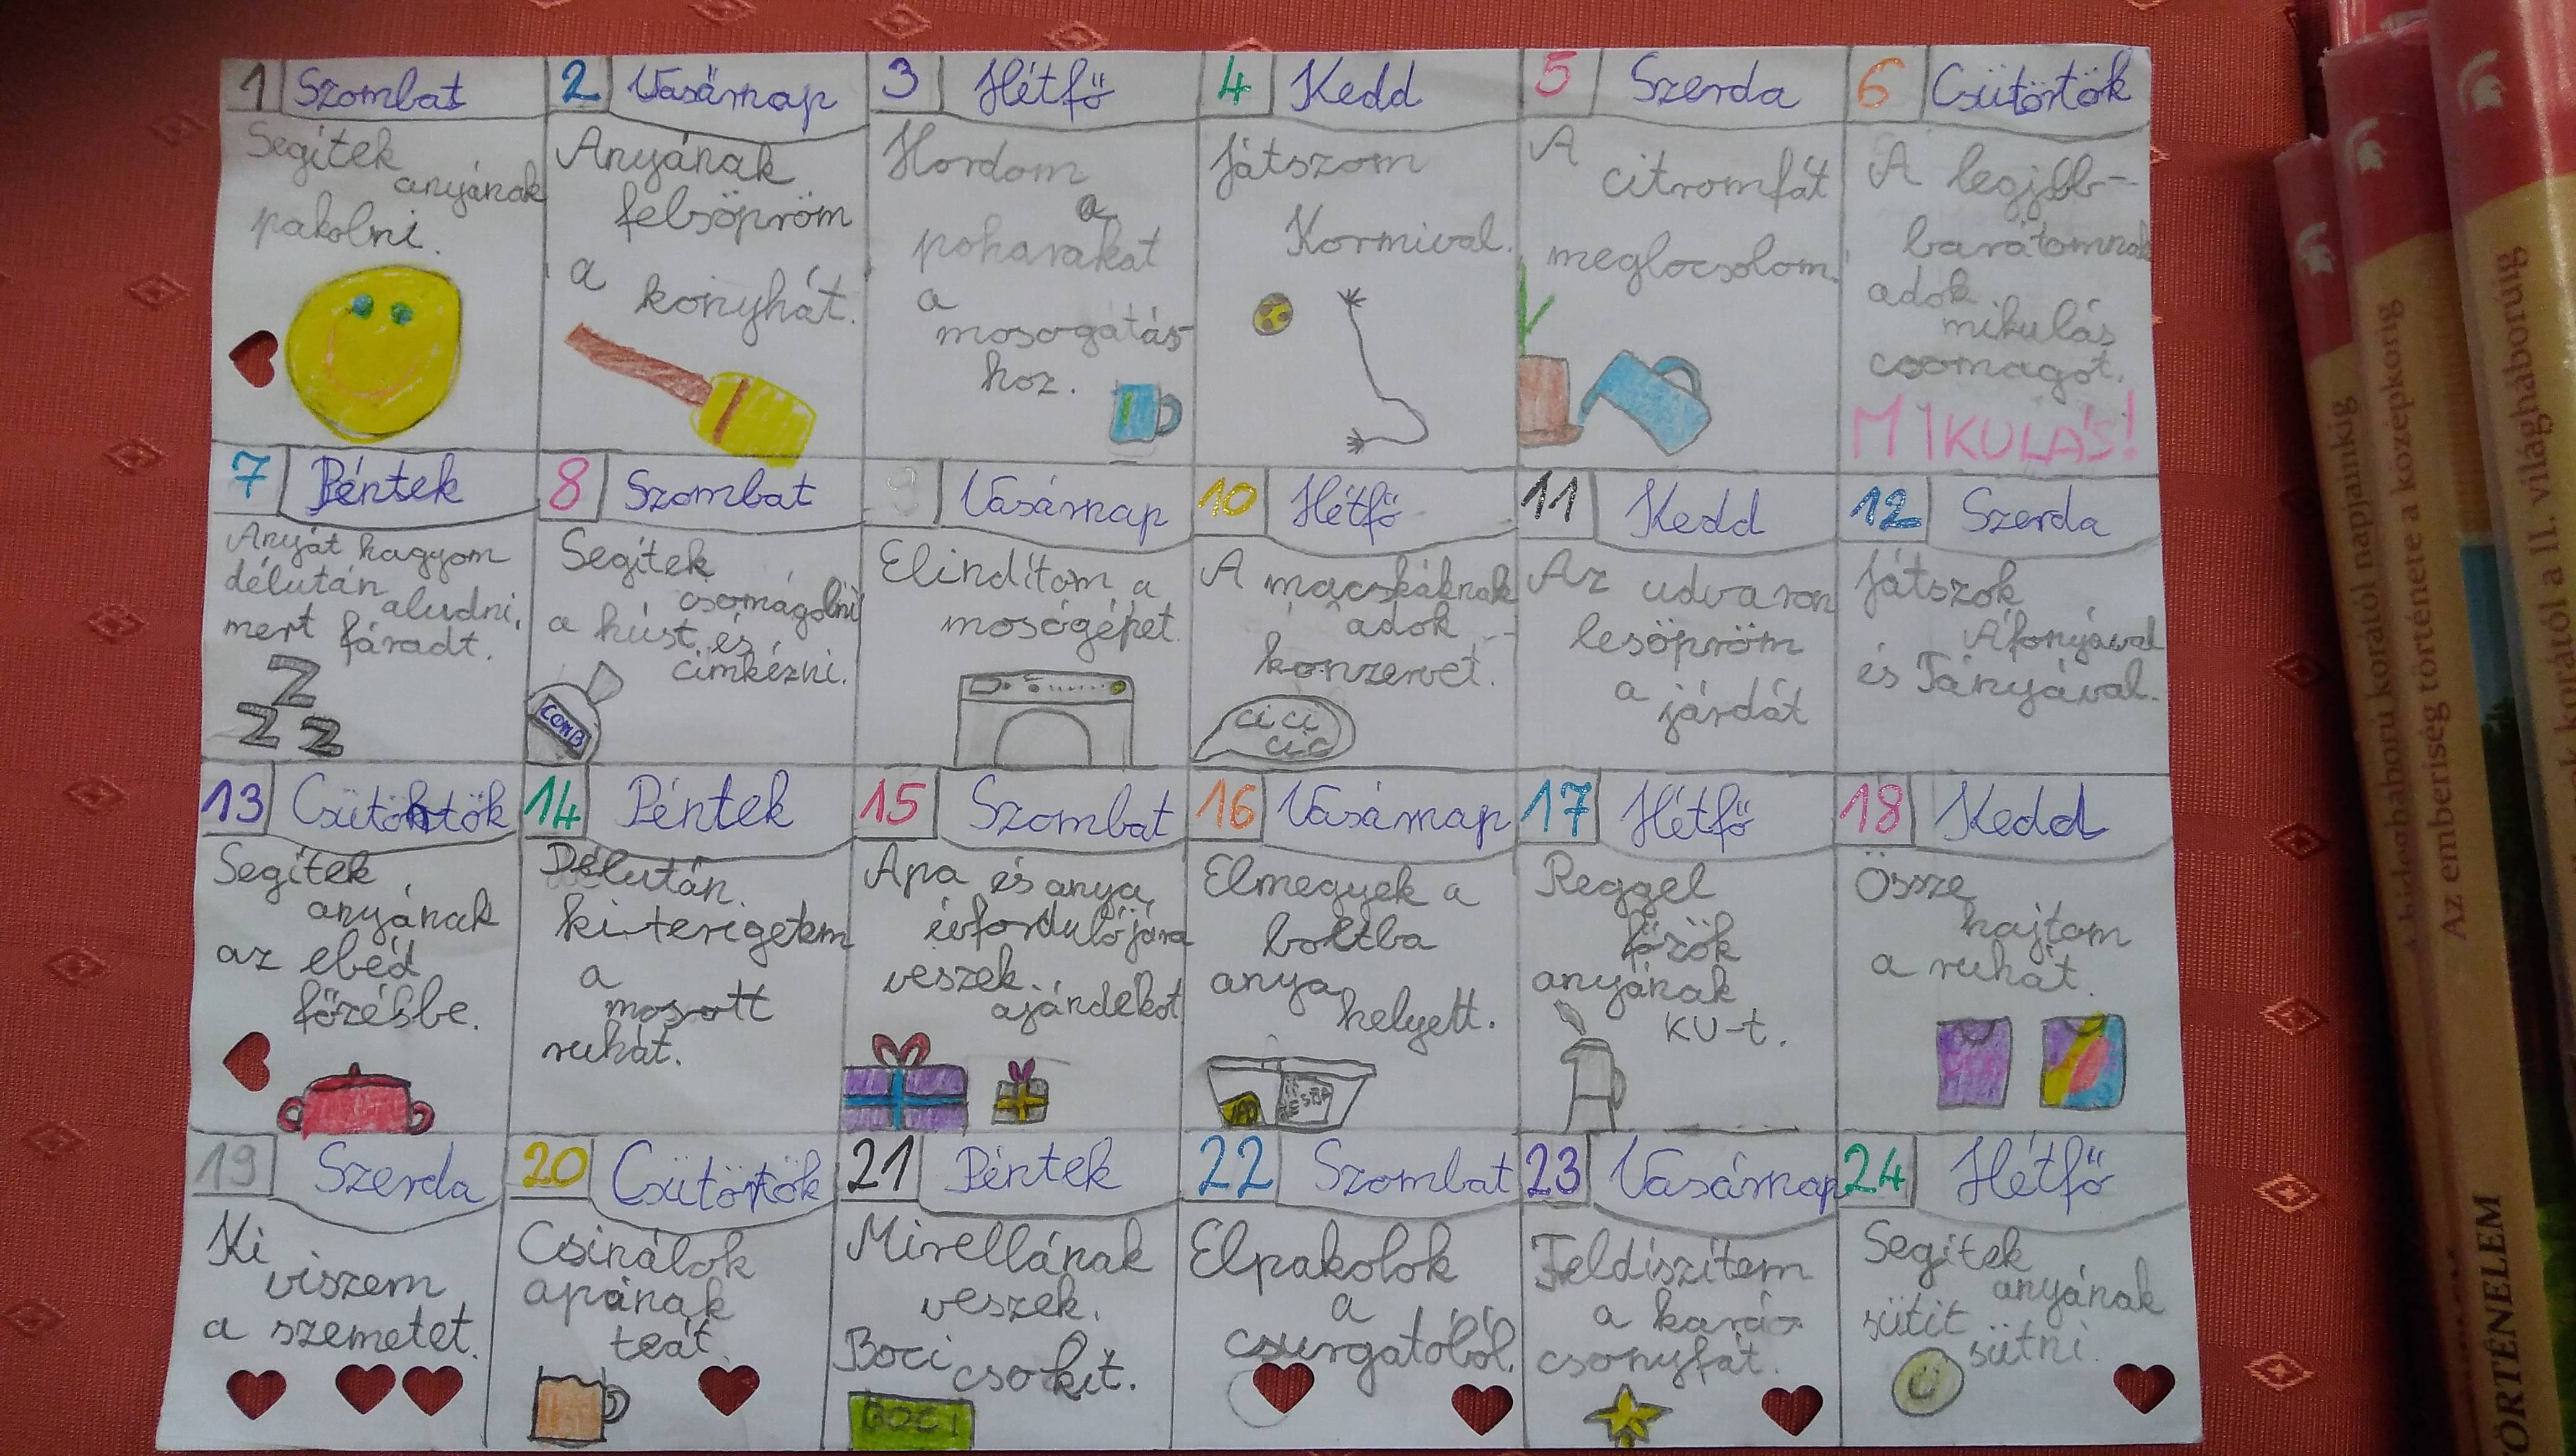 1 Szombat
Segítek
anyának
pakolni.
2 Vasárnap
Anyának
felsöpröm
a
konyhát.
3 Hétfő
Hordom
a
poharakat
a
mosogatás-
hoz.
4 Kedd
Játszom
Kormival.
5 Szerda
A
citromfát
meglocsolom.
6 Csütörtök
A legjobb-
barátomnak
adok
mikulás
csomagot.
MIKULÁS!
7 Péntek
Anyát hagyom
délután
aludni,
mert fáradt.
Z
Z Z
8 Szombat
Segítek
csomagolni
a húst és
cimkézni.
COMB
9 Vasárnap
Elindítom a
mosógépet.
10 Hétfő
A macskáknak
adok
konzervet.
ci ci
cic
11 Kedd
Az udvaron
lesöpröm
a járdát
12 Szerda
Játszok
Áfonyával
és Tányával.
13 Csütörtök
Segítek
anyának
az ebéd
főzésbe.
14 Péntek
Délután
kiterigetem
a
mosott
ruhát.
15 Szombat
Apa és anya
évfordulójára
veszek
ajándékot
16 Vasárnap
Elmegyek a
boltba
anya
helyett.
17 Hétfő
Reggel
főzök
anyának
KV-t.
18 Kedd
Össze
hajtom
a ruhát.
19 Szerda
Ki
viszem
a szemetet.
20 Csütörtök
Csinálok
apának
teát.
21 Péntek
Mirellának
veszek.
Boci
csokit.
BOCI
22 Szombat
Elpakolok
a
csurgatóból.
23 Vasárnap
Feldíszítem
a kará-
csonyfát.
24 Hétfő
Segítek
anyának
sütit
sütni.
A hidegháború korától napjainkig
Az emberiség története a középkorig
TÖRTÉNELEM
korától a II. világháborúig